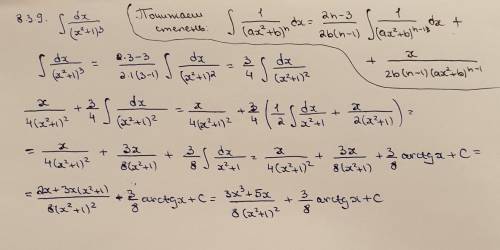 839. ∫ dx/(x²+1)³ Понижаем степень: ∫ 1/(ax²+b)ⁿ dx = 2n-3/2b(n-1) ∫ 1/(ax²+b)ⁿ⁻¹ dx +
+ x/2b(n-1)(ax²+b)ⁿ⁻¹
∫ dx/(x²+1)³ = 2·3-3/2·1(3-1) ∫ dx/(x²+1)² = 3/4 ∫ dx/(x²+1)²
x/4(x²+1)² + 3/4 ∫ dx/(x²+1)² = x/4(x²+1)² + 3/4 (1/2 ∫ dx/x²+1 + x/2(x²+1)) =
= x/4(x²+1)² + 3x/8(x²+1) + 3/8 ∫ dx/x²+1 = x/4(x²+1)² + 3x/8(x²+1) + 3/8 arctgx + C =
= 2x+3x(x²+1)/8(x²+1)² + 3/8 arctgx + C = 3x³+5x/8(x²+1)² + 3/8 arctgx + C